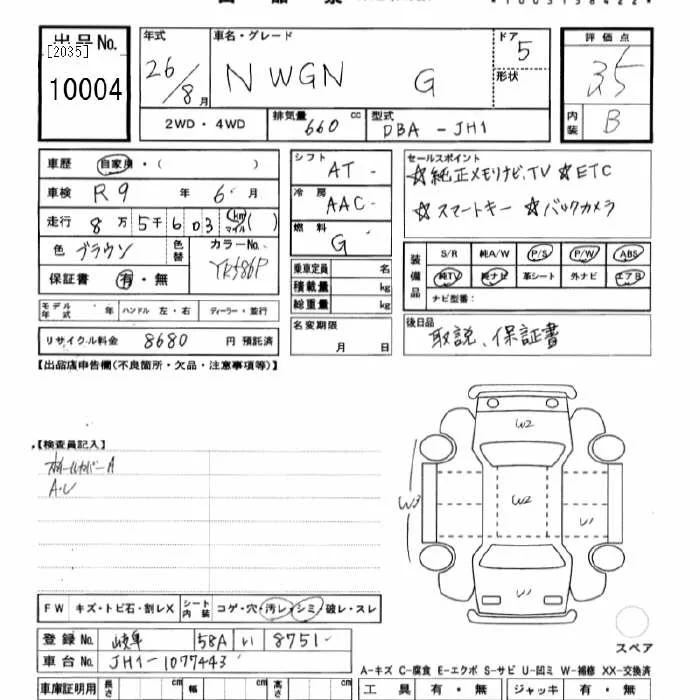 出品No.
[2035]
10004
年式
26/8月
車名・グレード
N WGN G
ドア
5
形状
評価点
3.5
内装
B
2WD・4WD
排気量
660 cc
型式
DBA-JH1
車歴 自家用・( )
車検 R9 年 6 月
走行 8万5千603 km マイル( )
色 ブラウン
色替
カラーNo.
YR586P
保証書 有・無
モデル年式 年 ハンドル 左・右 ディーラー・並行
リサイクル料金 8680 円 預託済
シフト
AT-
冷房
AAC-
燃料
G
乗車定員 名
積載量 kg
総重量 kg
名変期限
月 日
セールスポイント
☆純正メモリナビ、TV ☆ETC
☆スマートキー ☆バックカメラ
装備品
S/R 純A/W P/S P/W ABS
純TV 純ナビ 革シート 外ナビ エアB
ナビ型番:
後日品
取説、保証書
【出品店申告欄(不良箇所・欠品・注意事項等)】
【検査員記入】
ホイールカバーA
A・U
W2
W3
W2
U1
U1
スペア
FW キズ・トビ石・割レX シート内装 コゲ・穴・汚レ・シミ・破レ・スレ
登録No. 岐阜 58A い 8751-
車台No. JH1-1077443
車庫証明用 長さ cm 幅 cm 高さ cm
A-キズ C-腐食 E-エクボ S-サビ U-凹ミ W-補修 XX-交換済
工具 有・無 ジャッキ 有・無